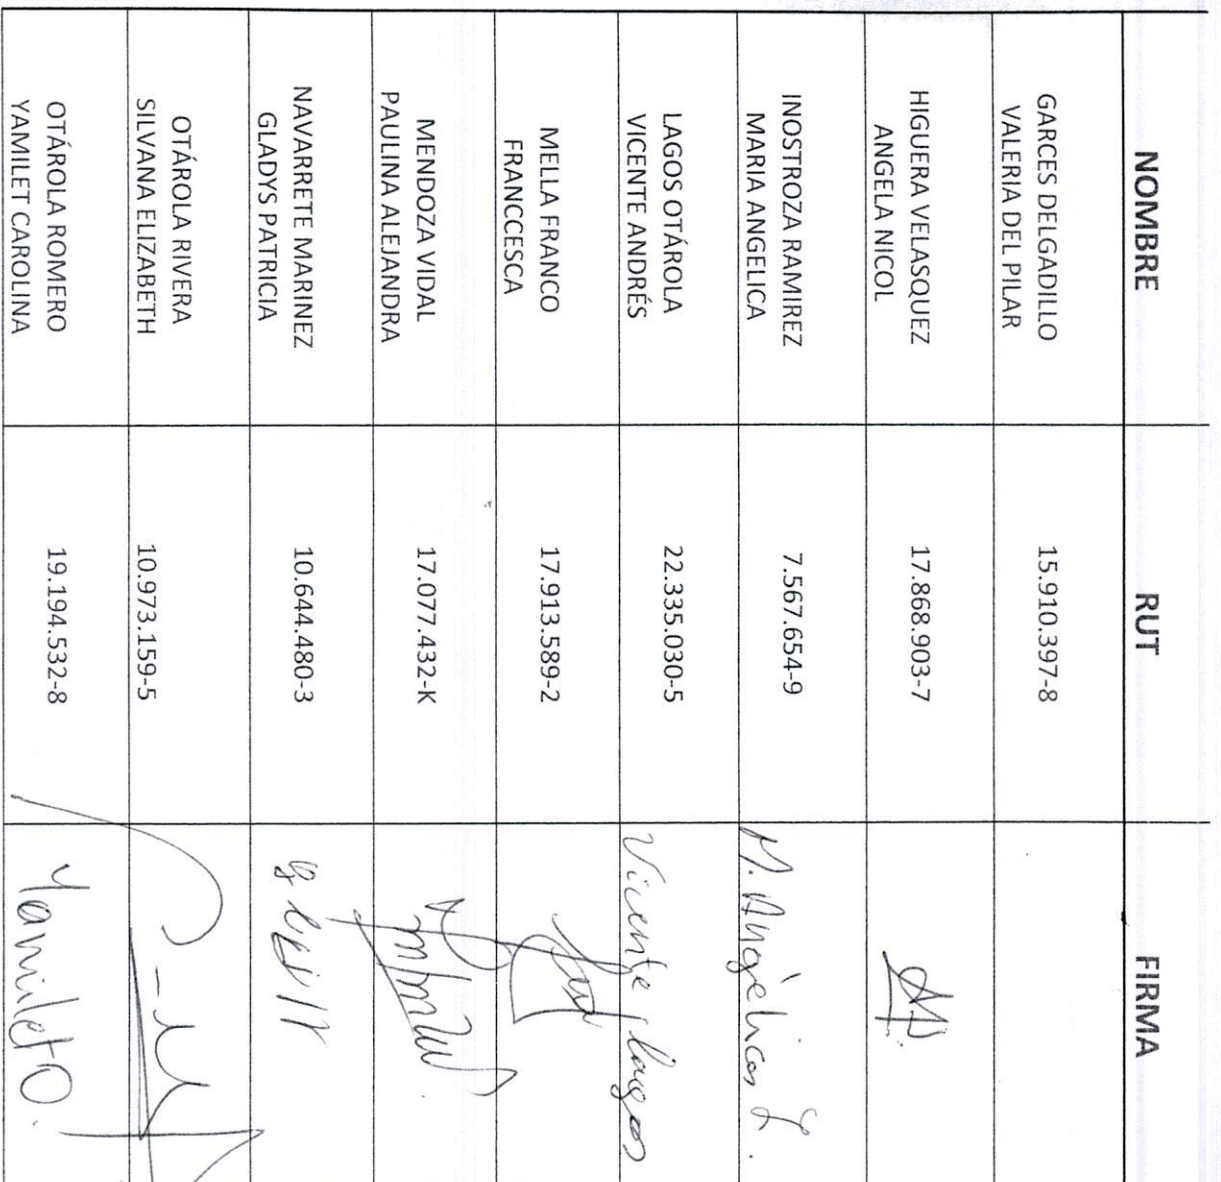 NOMBRE RUT FIRMA
GARCES DELGADILLO
VALERIA DEL PILAR 15.910.397-8
HIGUERA VELASQUEZ
ANGELA NICOL 17.868.903-7
INOSTROZA RAMIREZ
MARIA ANGELICA 7.567.654-9 M. Angèlica I.
LAGOS OTÁROLA
VICENTE ANDRÉS 22.335.030-5 Vicente Lagos
MELLA FRANCO
FRANCCESCA 17.913.589-2
MENDOZA VIDAL
PAULINA ALEJANDRA 17.077.432-K
NAVARRETE MARINEZ
GLADYS PATRICIA 10.644.480-3
OTÁROLA RIVERA
SILVANA ELIZABETH 10.973.159-5
OTÁROLA ROMERO
YAMILET CAROLINA 19.194.532-8 Yamilet O.